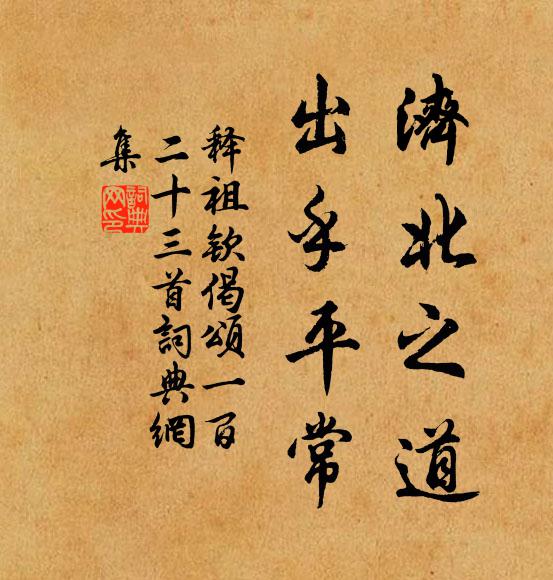 濟北之道
出乎平常
释祖钦偈頌一百
二十三首詞典網
集
詞典
网印